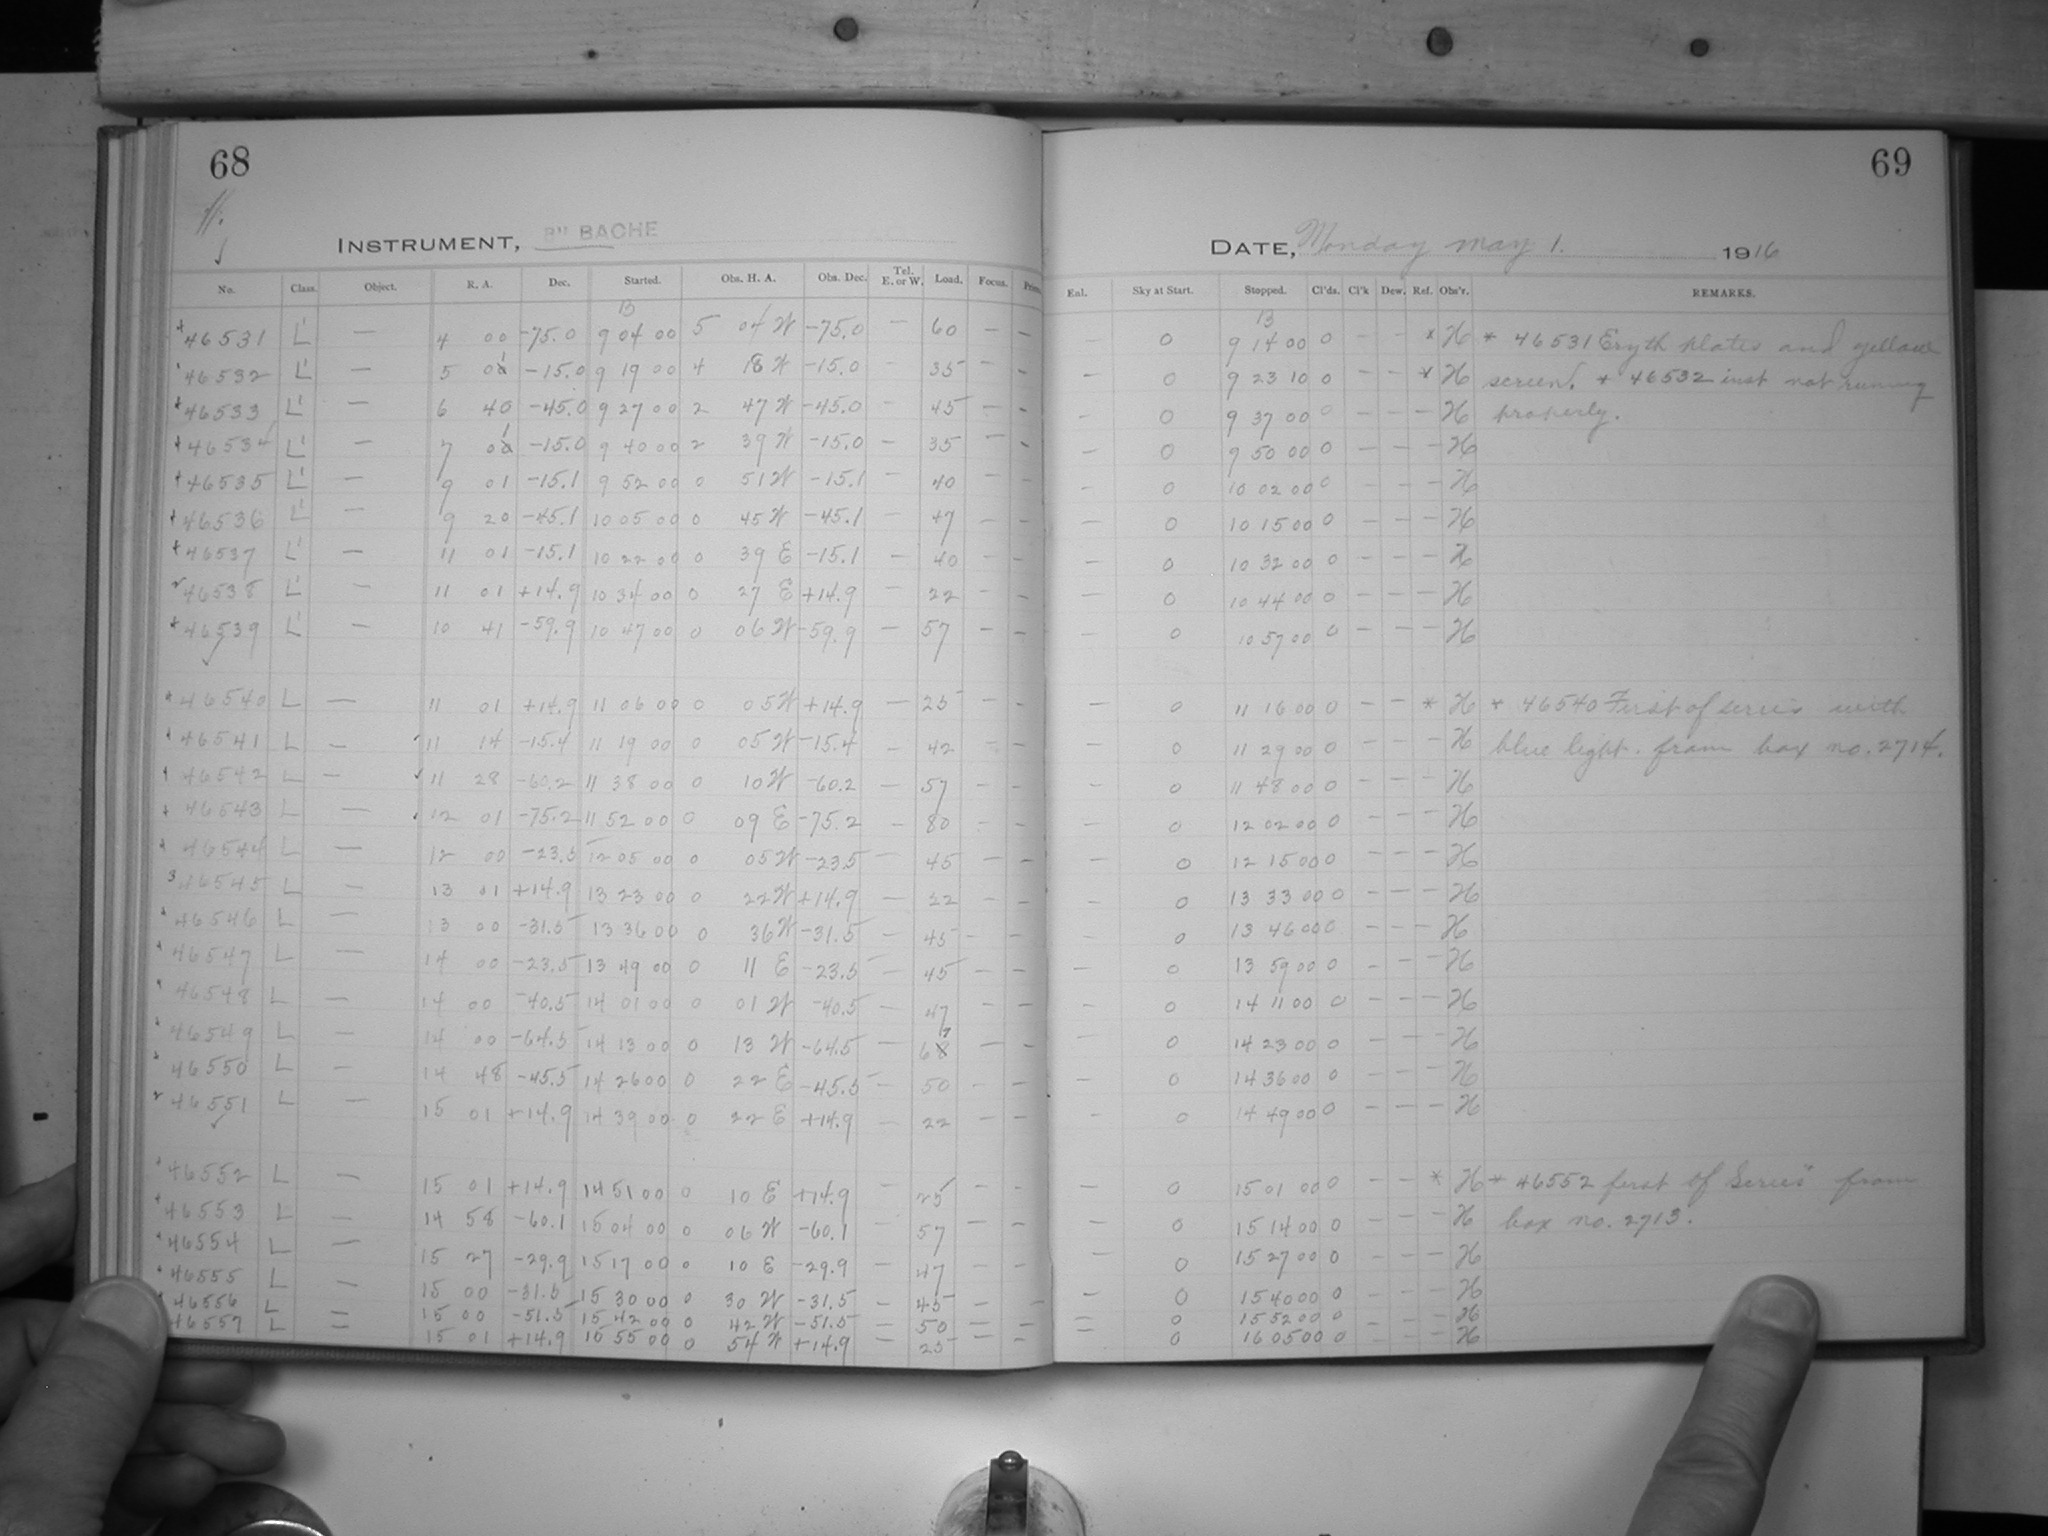 68
INSTRUMENT, 8" BACHE
No. Class. Object. R. A. Dec. Started. Obs. H. A. Obs. Dec. Tel. E. or W. Load. Focus.
13
46531 L' — 4 00 -75.0 9 04 00 5 04 W -75.0 — 60 — —
46532 L' — 5 01 -15.0 9 19 00 4 18 W -15.0 — 35 — —
46533 L' — 6 40 -45.0 9 27 00 2 47 W -45.0 — 45 — —
46534 L' — 7 01 -15.0 9 40 00 2 39 W -15.0 — 35 — —
46535 L' — 9 01 -15.1 9 52 00 0 51 W -15.1 40 — —
46536 L' — 9 20 -45.1 10 05 00 0 45 W -45.1 — 47 — —
46537 L' — 11 01 -15.1 10 22 00 0 39 E -15.1 — 40 — —
46538 L' — 11 01 +14.9 10 34 00 0 27 E +14.9 — 22 — —
46539 L' — 10 41 -59.9 10 47 00 0 06 W -59.9 — 57 — —
46540 L — 11 01 +14.9 11 06 00 0 05 W +14.9 — 25 — —
46541 L — 11 14 -15.4 11 19 00 0 05 W -15.4 — 42 — —
46542 L — 11 28 -60.2 11 38 00 0 10 W -60.2 — 57 — —
46543 L — 12 01 -75.2 11 52 00 0 09 E -75.2 — 80 — —
46544 L — 12 00 -23.5 12 05 00 0 05 W -23.5 — 45 — —
46545 L — 13 01 +14.9 13 23 00 0 22 W +14.9 — 22 — —
46546 L — 13 00 -31.5 13 36 00 0 36 W -31.5 — 45 — —
46547 L — 14 00 -23.5 13 49 00 0 11 E -23.5 — 45 — —
46548 L — 14 00 -40.5 14 01 00 0 01 W -40.5 — 47 — —
46549 L — 14 00 -64.5 14 13 00 0 13 W -64.5 — 67 — —
46550 L — 14 48 -45.5 14 26 00 0 22 E -45.5 — 50 — —
46551 L — 15 01 +14.9 14 39 00 0 22 E +14.9 — 22 — —
46552 L — 15 01 +14.9 14 51 00 0 10 E +14.9 — 25 — —
46553 L — 14 58 -60.1 15 04 00 0 06 W -60.1 — 57 — —
46554 L — 15 27 -29.9 15 17 00 0 10 E -29.9 — 47 — —
46555 L — 15 00 -31.5 15 30 00 0 30 W -31.5 — 45 — —
46556 L — 15 00 -51.5 15 42 00 0 42 W -51.5 — 50 — —
46557 L — 15 01 +14.9 15 55 00 0 54 W +14.9 — 25 — —
69
DATE, Monday May 1. 1916
Enl. Sky at Start. Stopped. Cl'ds. Cl'k Dew. Ref. Obs'r. REMARKS.
13
— 0 9 14 00 0 — — * H * 46531 Eryth plates and yellow
0 9 23 10 0 — — * H screen. * 46532 inst not running
— 0 9 37 00 0 — — — H properly.
— 0 9 50 00 0 — — — H
— 0 10 02 00 0 — — — H
— 0 10 15 00 0 — — — H
— 0 10 32 00 0 — — — H
— 0 10 44 00 0 — — — H
— 0 10 57 00 0 — — — H
— 0 11 16 00 0 — — * H * 46540 First of series with
— 0 11 29 00 0 — — — H blue light. from box no. 2714.
— 0 11 48 00 0 — — — H
— 0 12 02 00 0 — — — H
— 0 12 15 00 0 — — — H
— 0 13 33 00 0 — — — H
— 0 13 46 00 0 — — — H
— 0 13 59 00 0 — — — H
— 0 14 11 00 0 — — — H
— 0 14 23 00 0 — — — H
— 0 14 36 00 0 — — — H
— 0 14 49 00 0 — — — H
— 0 15 01 00 0 — — * H * 46552 first of Series from
— 0 15 14 00 0 — — — H box no. 2713.
— 0 15 27 00 0 — — — H
— 0 15 40 00 0 — — — H
— 0 15 52 00 0 — — — H
— 0 16 05 00 0 — — — H